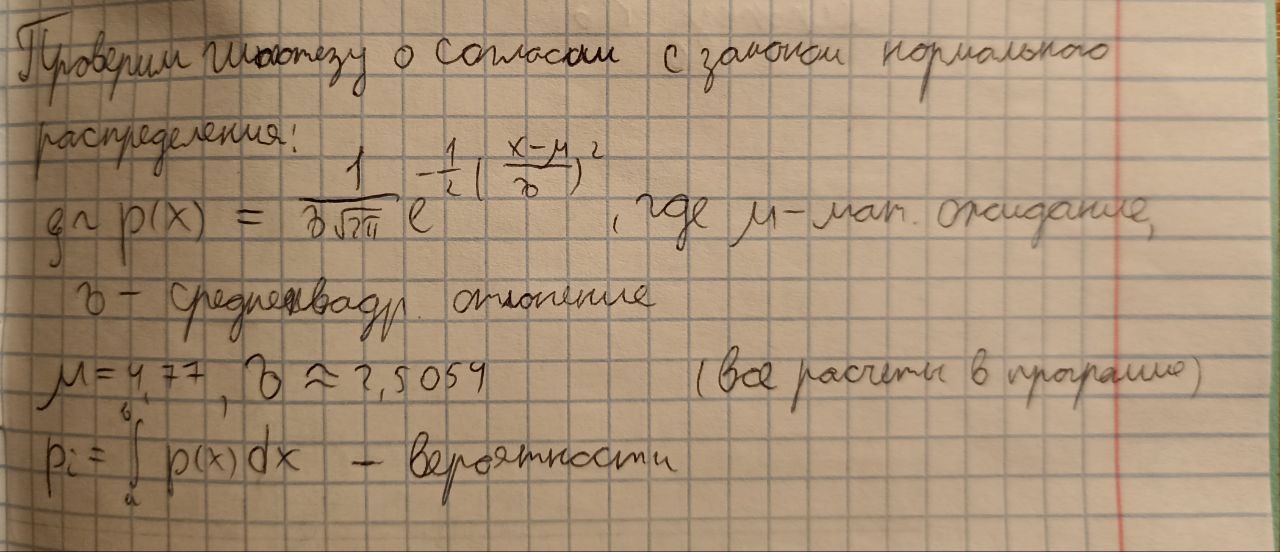 Проверим гипотезу о согласии с законом нормального
распределения:
для p(x) = 1/(σ√2π) e^(-1/2((x-μ)/σ)²), где μ - мат. ожидание,
σ - среднеквадр. отклонение
μ = 4,77, σ ≈ 2,5054 (все расчеты в программе)
pi = ∫ₐᵇ p(x)dx - вероятности